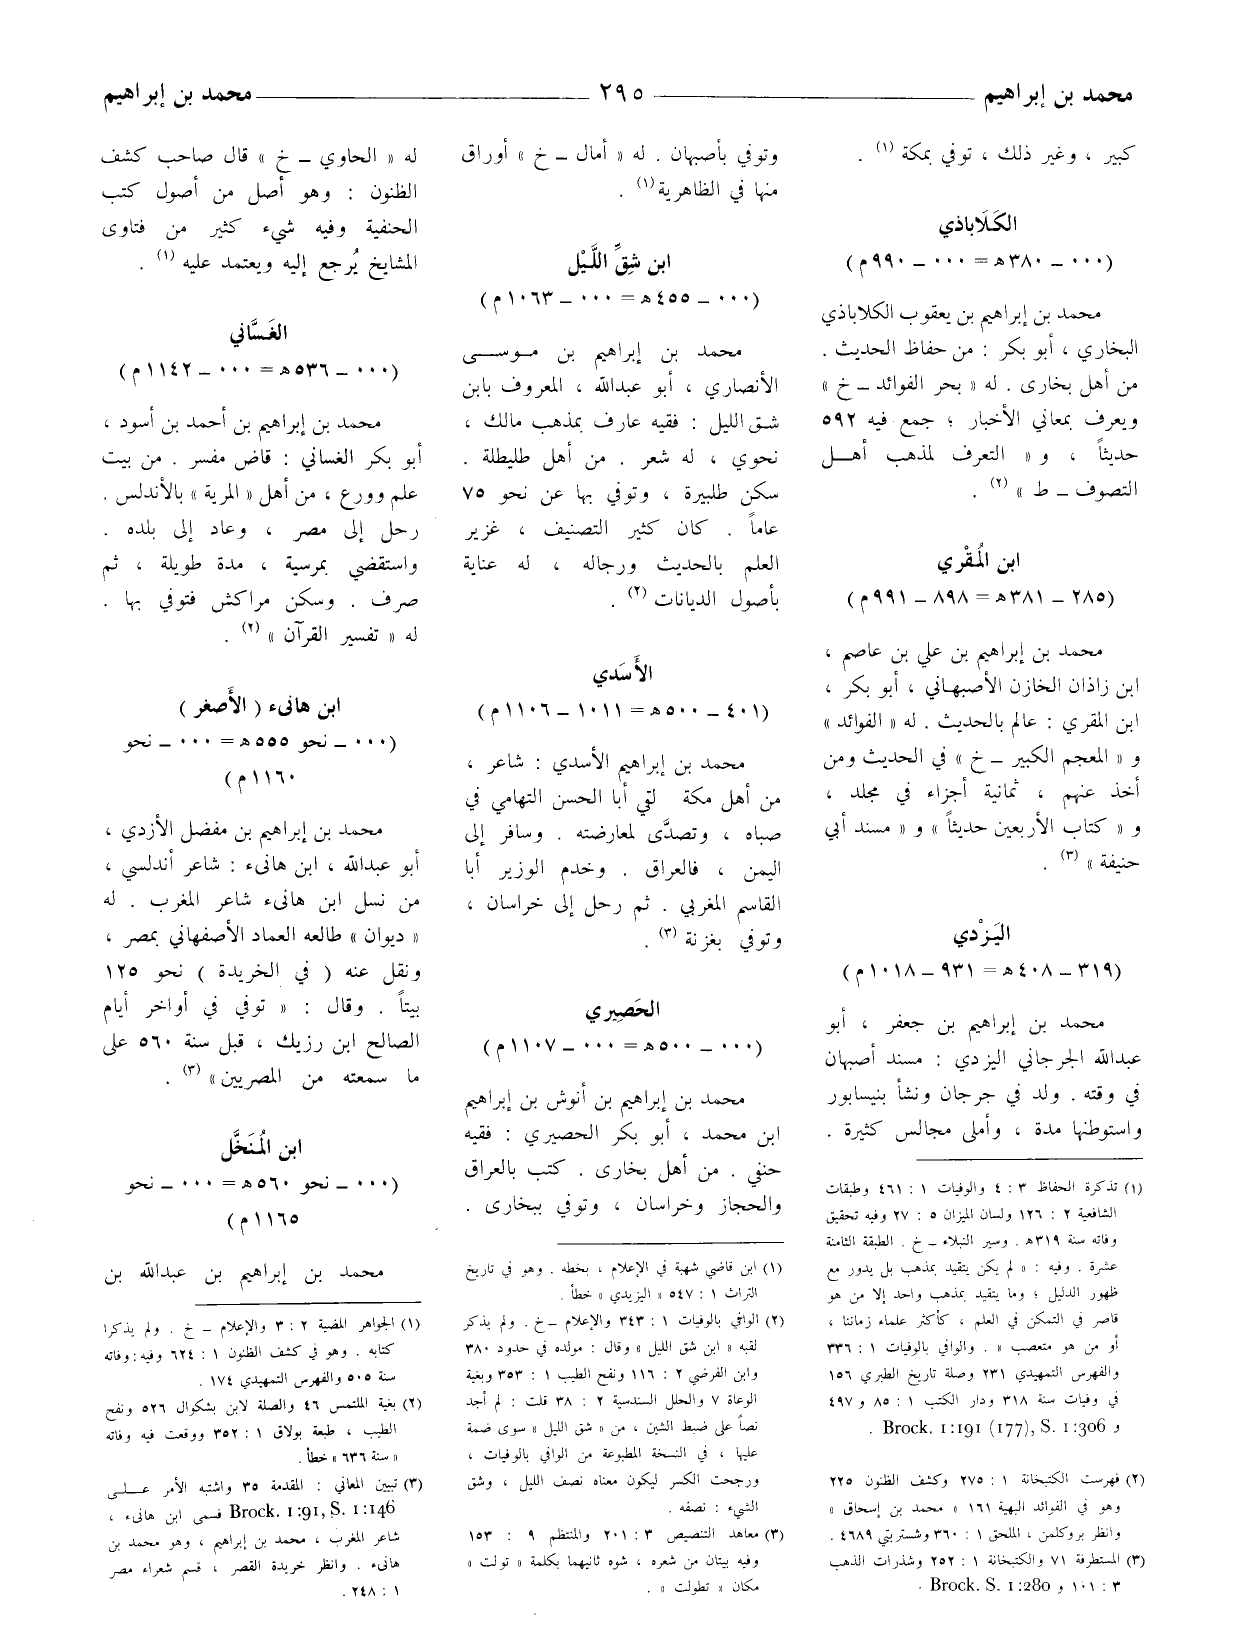 محمد بن إبراهيم ٢٩٥ محمد بن إبراهيم
كبير ، وغير ذلك ، توفي بمكة (١) .
الكَلَاباذي
(٠٠٠ ــ ٣٨٠هـ = ٠٠٠ ــ ٩٩٠م)
محمد بن إبراهيم بن يعقوب الكلاباذي
البخاري ، أبو بكر : من حفاظ الحديث .
من أهل بخارى . له « بحر الفوائد ــ خ »
ويعرف بمعاني الأخبار ؛ جمع فيه ٥٩٢
حديثاً ، و« التعرف لمذهب أهــل
التصوف ــ ط » (٢) .
ابن المُقْري
(٢٨٥ ــ ٣٨١هـ = ٨٩٨ ــ ٩٩١م)
محمد بن إبراهيم بن علي بن عاصم ،
ابن زاذان الخازن الأصبهاني ، أبو بكر ،
ابن المقري : عالم بالحديث . له « الفوائد »
و « المعجم الكبير ــ خ » في الحديث ومن
أخذ عنهم ، ثمانية أجزاء في مجلد ،
و « كتاب الأربعين حديثاً » و « مسند أبي
حنيفة » (٣) .
اليَزْدي
(٣١٩ ــ ٤٠٨هـ = ٩٣١ ــ ١٠١٨م)
محمد بن إبراهيم بن جعفر ، أبو
عبدالله الجرجاني اليزدي : مسند أصبهان
في وقته . ولد في جرجان ونشأ بنيسابور
واستوطنها مدة ، وأملى مجالس كثيرة .
(١) تذكرة الحفاظ ٣ : ٤ والوفيات ١ : ٤٦١ وطبقات
الشافعية ٢ : ١٢٦ ولسان الميزان ٥ : ٢٧ وفيه تحقيق
وفاته سنة ٣١٩هـ . وسير النبلاء ــ خ . الطبقة الثامنة
عشرة . وفيه : « لم يكن يتقيد بمذهب بل يدور مع
ظهور الدليل ؛ وما يتقيد بمذهب واحد إلا من هو
قاصر في التمكن في العلم ، كأكثر علماء زماننا ،
أو من هو متعصب » . والوافي بالوفيات ١ : ٣٣٦
والفهرس التمهيدي ٢٣١ وصلة تاريخ الطبري ١٥٦
في وفيات سنة ٣١٨ ودار الكتب ١ : ٨٥ و ٤٩٧
و Brock. 1:191 (177), S. 1:306 .
(٢) فهرست الكتبخانة ١ : ٢٧٥ وكشف الظنون ٢٢٥
وهو في الفوائد البهية ١٦١ « محمد بن إسحاق »
وانظر بروكلمن ، الملحق ١ : ٣٦٠ وشستربتي ٤٦٨٩ .
(٣) المستطرفة ٧١ والكتبخانة ١ : ٢٥٢ وشذرات الذهب
٣ : ١٠١ و Brock. S. 1:280 .
وتوفي بأصبهان . له « أمال ــ خ » أوراق
منها في الظاهرية (١) .
ابن شِقِّ اللَّيْل
(٠٠٠ ــ ٤٥٥هـ = ٠٠٠ ــ ١٠٦٣م)
محمد بن إبراهيم بن مــوســى
الأنصاري ، أبو عبدالله ، المعروف بابن
شق الليل : فقيه عارف بمذهب مالك ،
نحوي ، له شعر . من أهل طليطلة .
سكن طلبيرة ، وتوفي بها عن نحو ٧٥
عاماً . كان كثير التصنيف ، غزير
العلم بالحديث ورجاله ، له عناية
بأصول الديانات (٢) .
الأَسَدي
(٤٠١ ــ ٥٠٠هـ = ١٠١١ ــ ١١٠٦م)
محمد بن إبراهيم الأسدي : شاعر ،
من أهل مكة لقي أبا الحسن التهامي في
صباه ، وتصدَّى لمعارضته . وسافر إلى
اليمن ، فالعراق . وخدم الوزير أبا
القاسم المغربي . ثم رحل إلى خراسان ،
وتوفي بغزنة (٣) .
الحَصِيري
(٠٠٠ ــ ٥٠٠هـ = ٠٠٠ ــ ١١٠٧م)
محمد بن إبراهيم بن أنوش بن إبراهيم
ابن محمد ، أبو بكر الحصيري : فقيه
حنفي . من أهل بخارى . كتب بالعراق
والحجاز وخراسان ، وتوفي ببخارى .
(١) ابن قاضي شهبة في الإعلام ، بخطه . وهو في تاريخ
التراث ١ : ٥٤٧ « اليزيدي » خطأ .
(٢) الوافي بالوفيات ١ : ٣٤٣ والإعلام ــ خ . ولم يذكر
لقبه « ابن شق الليل » وقال : مولده في حدود ٣٨٠
وابن الفرضي ٢ : ١١٦ ونفح الطيب ١ : ٣٥٣ وبغية
الوعاة ٧ والحلل السندسية ٢ : ٣٨ قلت : لم أجد
نصاً على ضبط الشين ، من « شق الليل » سوى ضمة
عليها ، في النسخة المطبوعة من الوافي بالوفيات ،
ورجحت الكسر ليكون معناه نصف الليل ، وشق
الشيء : نصفه .
(٣) معاهد التنصيص ٣ : ٢٠١ والمنتظم ٩ : ١٥٣
وفيه بيتان من شعره ، شوه ثانيهما بكلمة « تولت »
مكان « تطولت » .
له « الحاوي ــ خ » قال صاحب كشف
الظنون : وهو أصل من أصول كتب
الحنفية وفيه شيء كثير من فتاوى
المشايخ يُرجع إليه ويعتمد عليه (١) .
الغَسَّاني
(٠٠٠ ــ ٥٣٦هـ = ٠٠٠ ــ ١١٤٢م)
محمد بن إبراهيم بن أحمد بن أسود ،
أبو بكر الغساني : قاض مفسر . من بيت
علم وورع ، من أهل « المرية » بالأندلس .
رحل إلى مصر ، وعاد إلى بلده .
واستقضي بمرسية ، مدة طويلة ، ثم
صرف . وسكن مراكش فتوفي بها .
له « تفسير القرآن » (٢) .
ابن هانىء ( الأَصغر )
(٠٠٠ ــ نحو ٥٥٥هـ = ٠٠٠ ــ نحو
١١٦٠م)
محمد بن إبراهيم بن مفضل الأزدي ،
أبو عبدالله ، ابن هانىء : شاعر أندلسي ،
من نسل ابن هانىء شاعر المغرب . له
« ديوان » طالعه العماد الأصفهاني بمصر ،
ونقل عنه ( في الخريدة ) نحو ١٢٥
بيتاً . وقال : « توفي في أواخر أيام
الصالح ابن رزيك ، قبل سنة ٥٦٠ على
ما سمعته من المصريين» (٣) .
ابن المُنَخَّل
(٠٠٠ ــ نحو ٥٦٠هـ = ٠٠٠ ــ نحو
١١٦٥م)
محمد بن إبراهيم بن عبدالله بن
(١) الجواهر المضية ٢ : ٣ والإعلام ــ خ . ولم يذكرا
كتابه . وهو في كشف الظنون ١ : ٦٢٤ وفيه : وفاته
سنة ٥٠٥ والفهرس التمهيدي ١٧٤ .
(٢) بغية الملتمس ٤٦ والصلة لابن بشكوال ٥٢٦ ونفح
الطيب ، طبعة بولاق ١ : ٣٥٢ ووقعت فيه وفاته
« سنة ٦٣٦ » خطأ .
(٣) تبيين المعاني : المقدمة ٣٥ واشتبه الأمر علــى
Brock. 1:91, S. 1:146 فسمى ابن هانىء ،
شاعر المغرب ، محمد بن إبراهيم ، وهو محمد بن
هانىء . وانظر خريدة القصر ، قسم شعراء مصر
١ : ٢٤٨ .